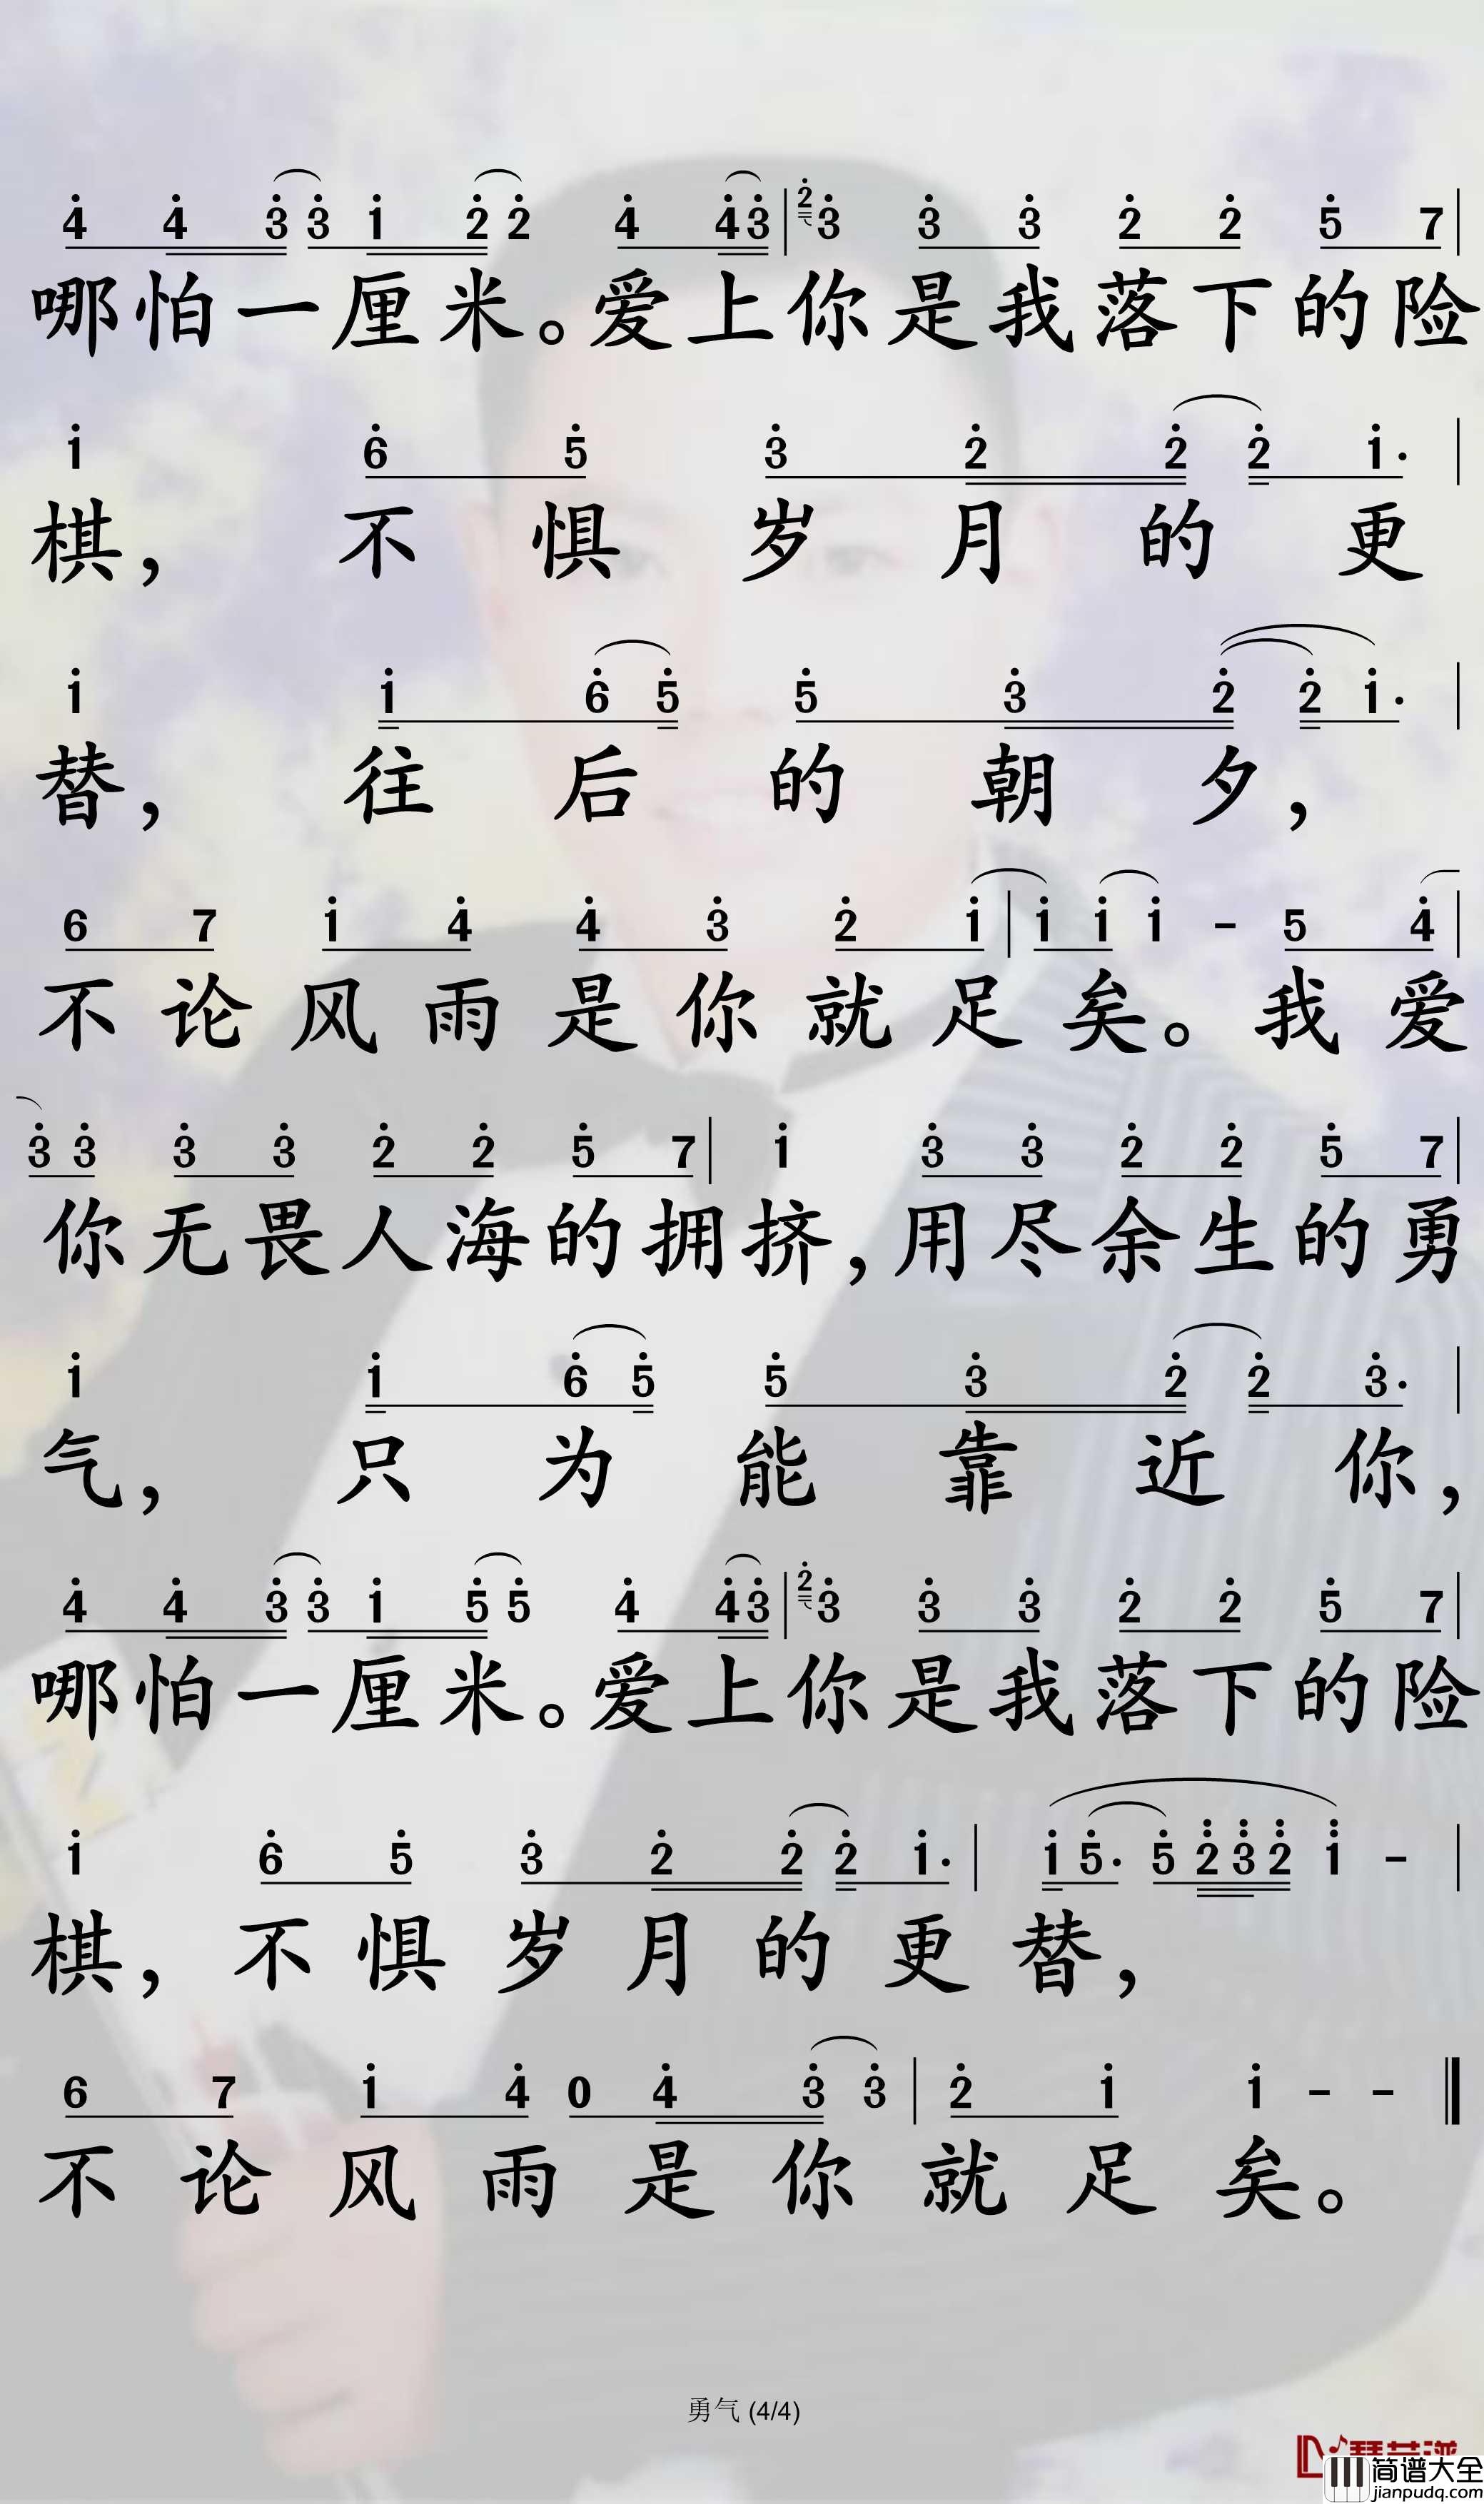 4 4 3 3 1 2 2 4 4 3 | 2 3 3 3 2 2 5 7 |
哪怕一厘米。爱上你是我落下的险
1 6 5 3 2 2 2 1. |
棋，不惧岁月的更
1 1 6 5 5 3 2 2 1. |
替，往后的朝夕，
6 7 1 4 4 3 2 1 | 1 1 1 - 5 4 |
不论风雨是你就足矣。我爱
3 3 3 3 2 2 5 7 | 1 3 3 2 2 5 7 |
你无畏人海的拥挤，用尽余生的勇
1 1 6 5 5 3 2 2 3. |
气，只为能靠近你，
4 4 3 3 1 5 5 4 4 3 | 2 3 3 3 2 2 5 7 |
哪怕一厘米。爱上你是我落下的险
1 6 5 3 2 2 2 1. | 1 5. 5 2 3 2 1 - |
棋，不惧岁月的更替，
6 7 1 4 0 4 3 3 | 2 1 1 - -
不论风雨是你就足矣。
勇气 (4/4)
简谱大全
jianpudq.com